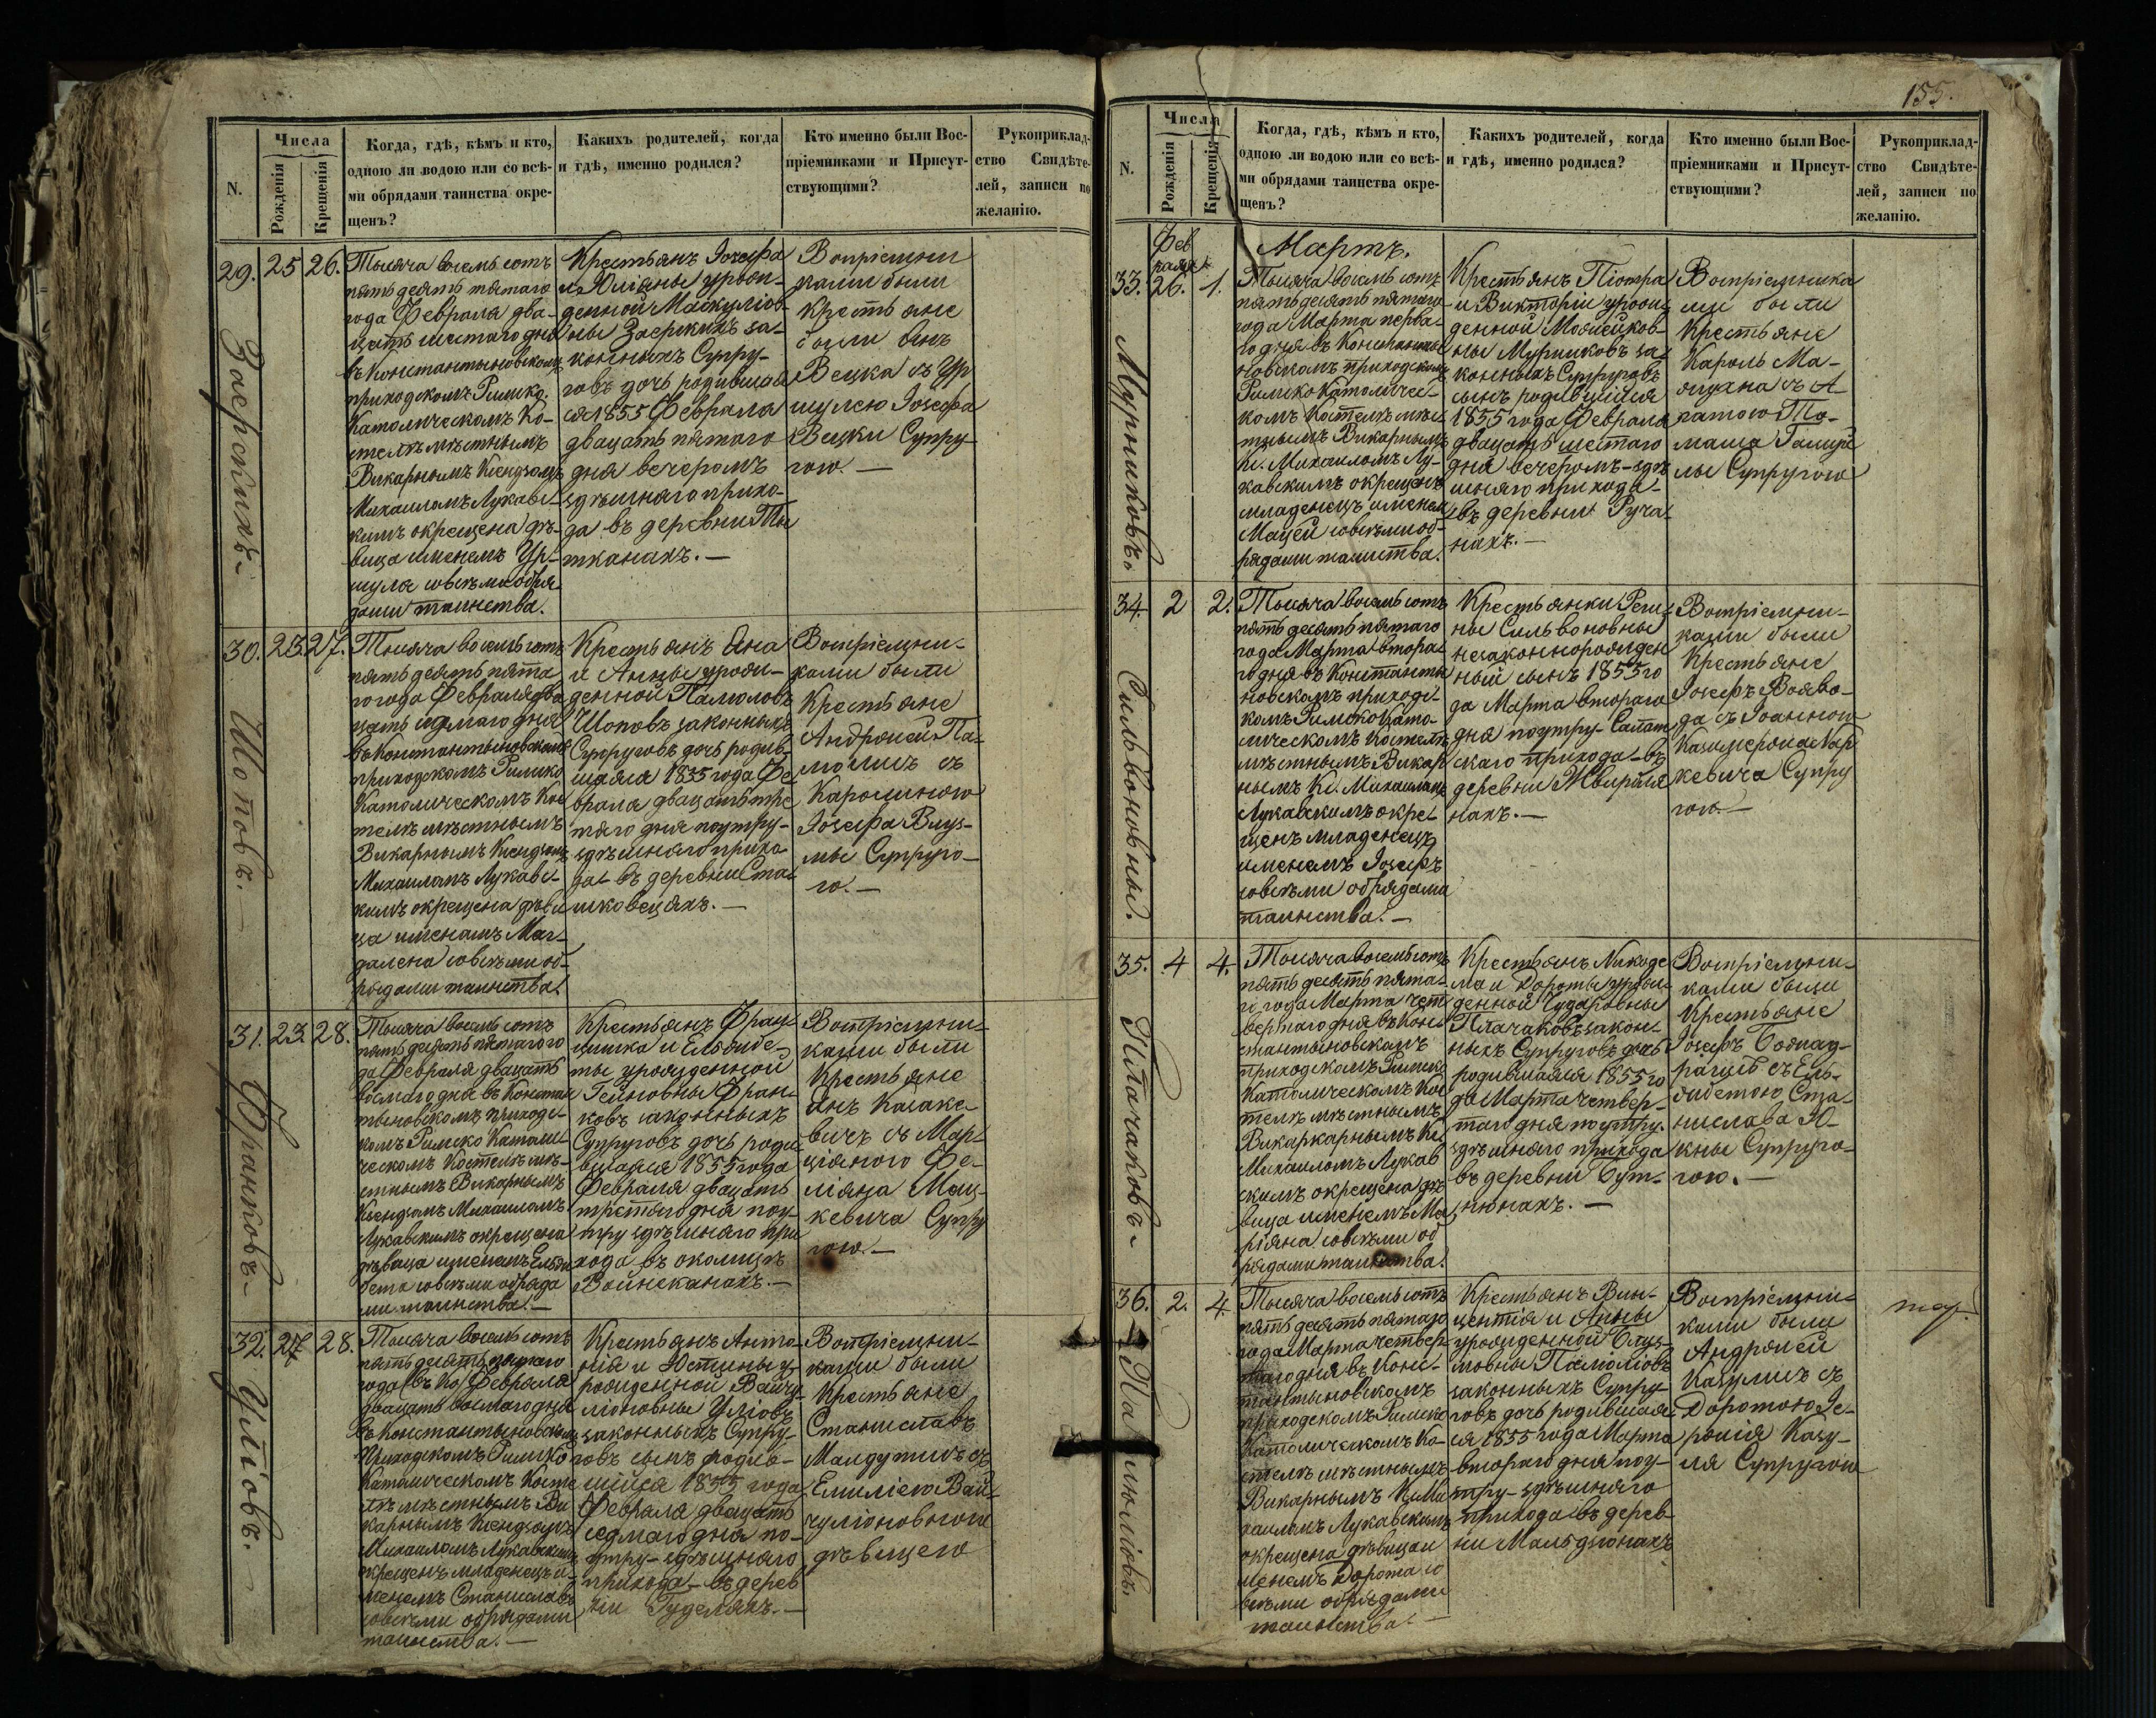 N.
Числа
Рожденія
Крещенія
Когда, гдѣ, кѣмъ и кто,
одною ли водою или со всѣ-
ми обрядами таинства окре-
щенъ?
Какихъ родителей, когда
и гдѣ, именно родился?
Кто именно были Вос-
пріемниками и Присут-
ствующими?
Рукоприклад-
ство Свидѣте-
лей, записи по
желанію.
29.
Заерскихъ
25
26.
Тысяча восемь сотъ
пять десятъ пятаго
года Февраля два-
цать шестаго дня
въ Константыновскомъ
приходскомъ Римско
Католическомъ Ко-
стелѣ мѣстнымъ
Викарнымъ Ксендзомъ
Михаиломъ Лукавс-
кимъ окрещена дѣ-
вица именемъ Ур-
шуля совсѣми обря-
дами таинства.
Крестьянъ Іозефа
и Юліяны урожденной
законныхъ Супру-
говъ дочь родивша
ся 1855 Февраля
двацать пятаго
дня вечеромъ
здѣшняго прихо-
да въ деревни
Вопріемни
ками были
Крестьяне
Янъ
Вецка съ Ур
шулею Іозефа
Вецки Супру-
гою.—
30.
Шоповъ.
23
27.
Тысяча восемь сотъ
пять десятъ пята
го года Февраля два
цать седмаго дня
въ Константыновскомъ
приходскомъ Римско
Католическомъ Кос
телѣ мѣстнымъ
Викарнымъ Ксендзомъ
Михаиломъ Лукавс-
кимъ окрещена дѣви
ца именемъ Маг-
далена совсѣми об-
рядами таинства.
Крестьянъ Яна
и Анны урож-
денной
Шоповъ законныхъ
Супруговъ дочь родив-
шаяся 1855 года Фе
враля двацать тре
тяго дня поутру-
здѣшняго прихо
да въ деревни Ста
шковецяхъ.—
Вопріемни-
ками были
Крестьяне
Андржей Па-
молишъ съ
Каролиною
Іозефа
Супруго-
ю.—
31.
Франковъ
23.
28.
Тысяча восемь сотъ
пять десятъ пятаго го
да Февраля двацать
восмаго дня въ Констан
тыновскомъ приходс-
комъ Римско Католи-
ческомъ Костелѣ мѣ-
стнымъ Викарнымъ
Ксендзомъ Михаиломъ
Лукавскимъ окрещена
дѣвица именемъ Ельжи
бета совсѣми обряда
ми таинства.—
Крестьянъ Фран-
цишка и Ельжбе-
ты урожденной
Гейновны Фран-
ковъ законныхъ
Супруговъ дочь роди
вшаяся 1855 года
Февраля двацать
третяго дня поу
тру здѣшняго при
хода въ околицѣ
Войнеканахъ.—
Вопріемни-
ками были
Крестьяне
Янъ
съ Мар-
ціяною Фе-
ліяна Мац-
кевича Супру
гою.—
32.
Уліовъ.
27
28.
Тысяча восемь сотъ
пять десятъ пятаго
года Февраля
двацать восмаго дня
въ Константыновскомъ
Приходскомъ Римско
Католическомъ Косте
лѣ мѣстнымъ Ви
карнымъ Ксендзомъ
Михаиломъ Лукавскимъ
окрещенъ младенецъ и-
менемъ Станиславъ
совсѣми обрядами
таинства.—
Крестьянъ Анто-
нія и Юстыны у-
рожденной Вайчу-
ліоновны Уліовъ
законныхъ Супру-
говъ сынъ родив-
шійся 1855 года
Февраля двацать
седмаго дня по-
утру здѣшняго
прихода въ дерев
ни Гуделяхъ.—
Вопріемни-
ками были
Крестьяне
Станиславъ
съ
Емиліею Вай-
чуліоновною
дѣвицею
155.
N.
Числа
Рожденія
Крещенія
Когда, гдѣ, кѣмъ и кто,
одною ли водою или со всѣ-
ми обрядами таинства окре-
щенъ?
Какихъ родителей, когда
и гдѣ, именно родился?
Кто именно были Вос-
пріемниками и Присут-
ствующими?
Рукоприклад-
ство Свидѣте-
лей, записи по
желанію.
Фев
раля
Мартъ.
33.
Мурниковъ.
26.
1.
Тысяча восемь сотъ
пять десятъ пятаго
года Марта перва-
го дня въ Константы
новскомъ приходскомъ
Римско Католичес-
комъ Костелѣ мѣс-
тнымъ Викарнымъ
Кс. Михаиломъ Лу-
кавскимъ окрещенъ
младенецъ именемъ
Мацей совсѣми об-
рядами таинства.
Крестьянъ Піотра
и Викторіи урож-
денной Мосейков-
ны Мурниковъ за
конныхъ Супруговъ
сынъ родившійся
1855 года Февраля
двацать шестаго
дня вечеромъ-здѣ
шняго прихода-
въ деревни Руча
нахъ.—
Вопріемника
ми были
Крестьяне
Кароль Ма-
съ А
гатою То-
маша
Супругою
34.
Сильвоновны.
2
2.
Тысяча восемь сотъ
пять десятъ пятаго
года Марта втора-
го дня въ Константы
новскомъ приходс-
комъ Римско Като-
лическомъ Костелѣ
мѣстнымъ Викар
нымъ Кс. Михаиломъ
Лукавскимъ окре-
щенъ младенецъ
именемъ Іозефъ
совсѣми обрядами
таинства.—
Крестьянки Реги-
ны Сильвоновны
незаконнорожден
ный сынъ 1855 го
да Марта втораго
дня поутру
скаго прихода-въ
деревни
нахъ.—
Вопріемни-
ками были
Крестьяне
Іозефъ Воево-
да съ Іоанною
Казимержа
кевича Супру
гою.—
35.
Плачаковъ
4
4.
Тысяча восемь сотъ
пять десятъ пята-
го года Марта чет
вертаго дня въ Кон-
стантыновскомъ
приходскомъ Римско
Католическомъ Кос
телѣ мѣстнымъ
Викаркарнымъ Кс.
Михаиломъ Лукав
скимъ окрещена дѣ
вица именемъ Ма
ріяна совсѣми об
рядами таинства.
Крестьянъ Никоде
ма и Дороты урож-
денной
Плачаковъ закон-
ныхъ Супруговъ дочь
родившаяся 1855 го
да Марта четвер-
таго дня поутру.
здѣшняго прихода
въ деревни Бут-
Вопріемни-
ками были
Крестьяне
Іозефъ
съ Ель-
жбетою Ста-
нислава Ю-
кны Супруго-
гою.—
36.
Памюліовъ.
2.
4
Тысяча восемь сотъ
пять десятъ пятаго
года Марта четвер-
таго дня въ Конс-
тантыновскомъ
приходскомъ Римско
Католическомъ Ко-
стелѣ мѣстнымъ
Викарнымъ Кс. Ми
хаиломъ Лукавскимъ
окрещена дѣвица и
менемъ Дорота со
всѣми обрядами
таинства.—
Крестьянъ Вин-
центія и Анны
урожденной
Памюліовъ
законныхъ Супру-
говъ дочь родившая
ся 1855 года Марта
втораго дня поу-
тру-здѣшняго
прихода въ дерев
ни Мальдзюнахъ
Вопріемни-
ками были
Андржей
Казулишъ съ
Доротою Іе-
ронія Казу-
ля Супругою